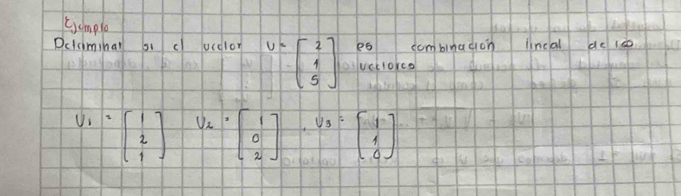 Ejemplo
Determinar si el vector U = [2 1 5] es combinación lineal de los
vectores
U₁ = [1 2 1] U₂ = [1 0 2], U₃ = [1 1 0]